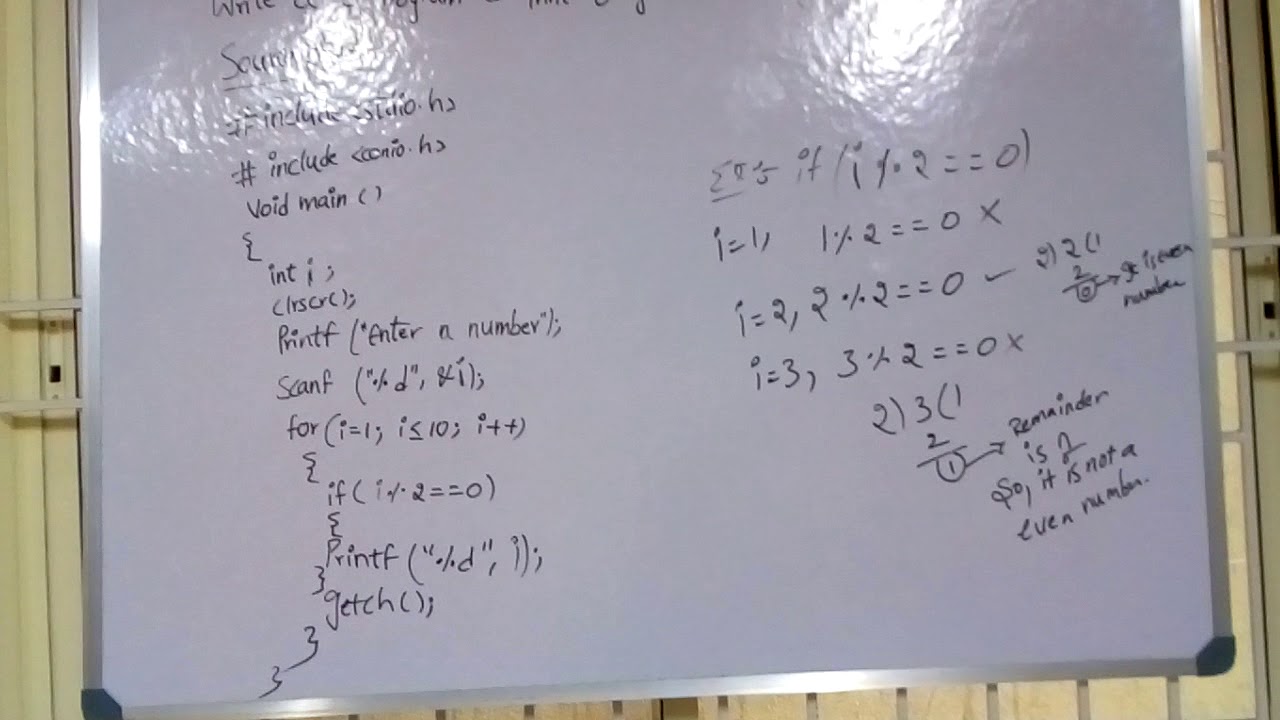 Write a C Program
#include <stdio.h>
#include <conio.h>
Void main ()
{
int i ;
Clrscr();
Printf ("Enter a number");
Scanf ("%d", &i);
for (i=1; i≤10; i++)
{
if (i%2==0)
{
Printf ("%d", i);
}
getch();
}
}
if (i%2==0)
i=1, 1%2==0 ×
i=2, 2%2==0 ✓
2)2(1
2
0 → It is even
number
i=3, 3%2==0 ×
2)3(1
2
1 → Remainder
is 1
So, it is not a
even number.